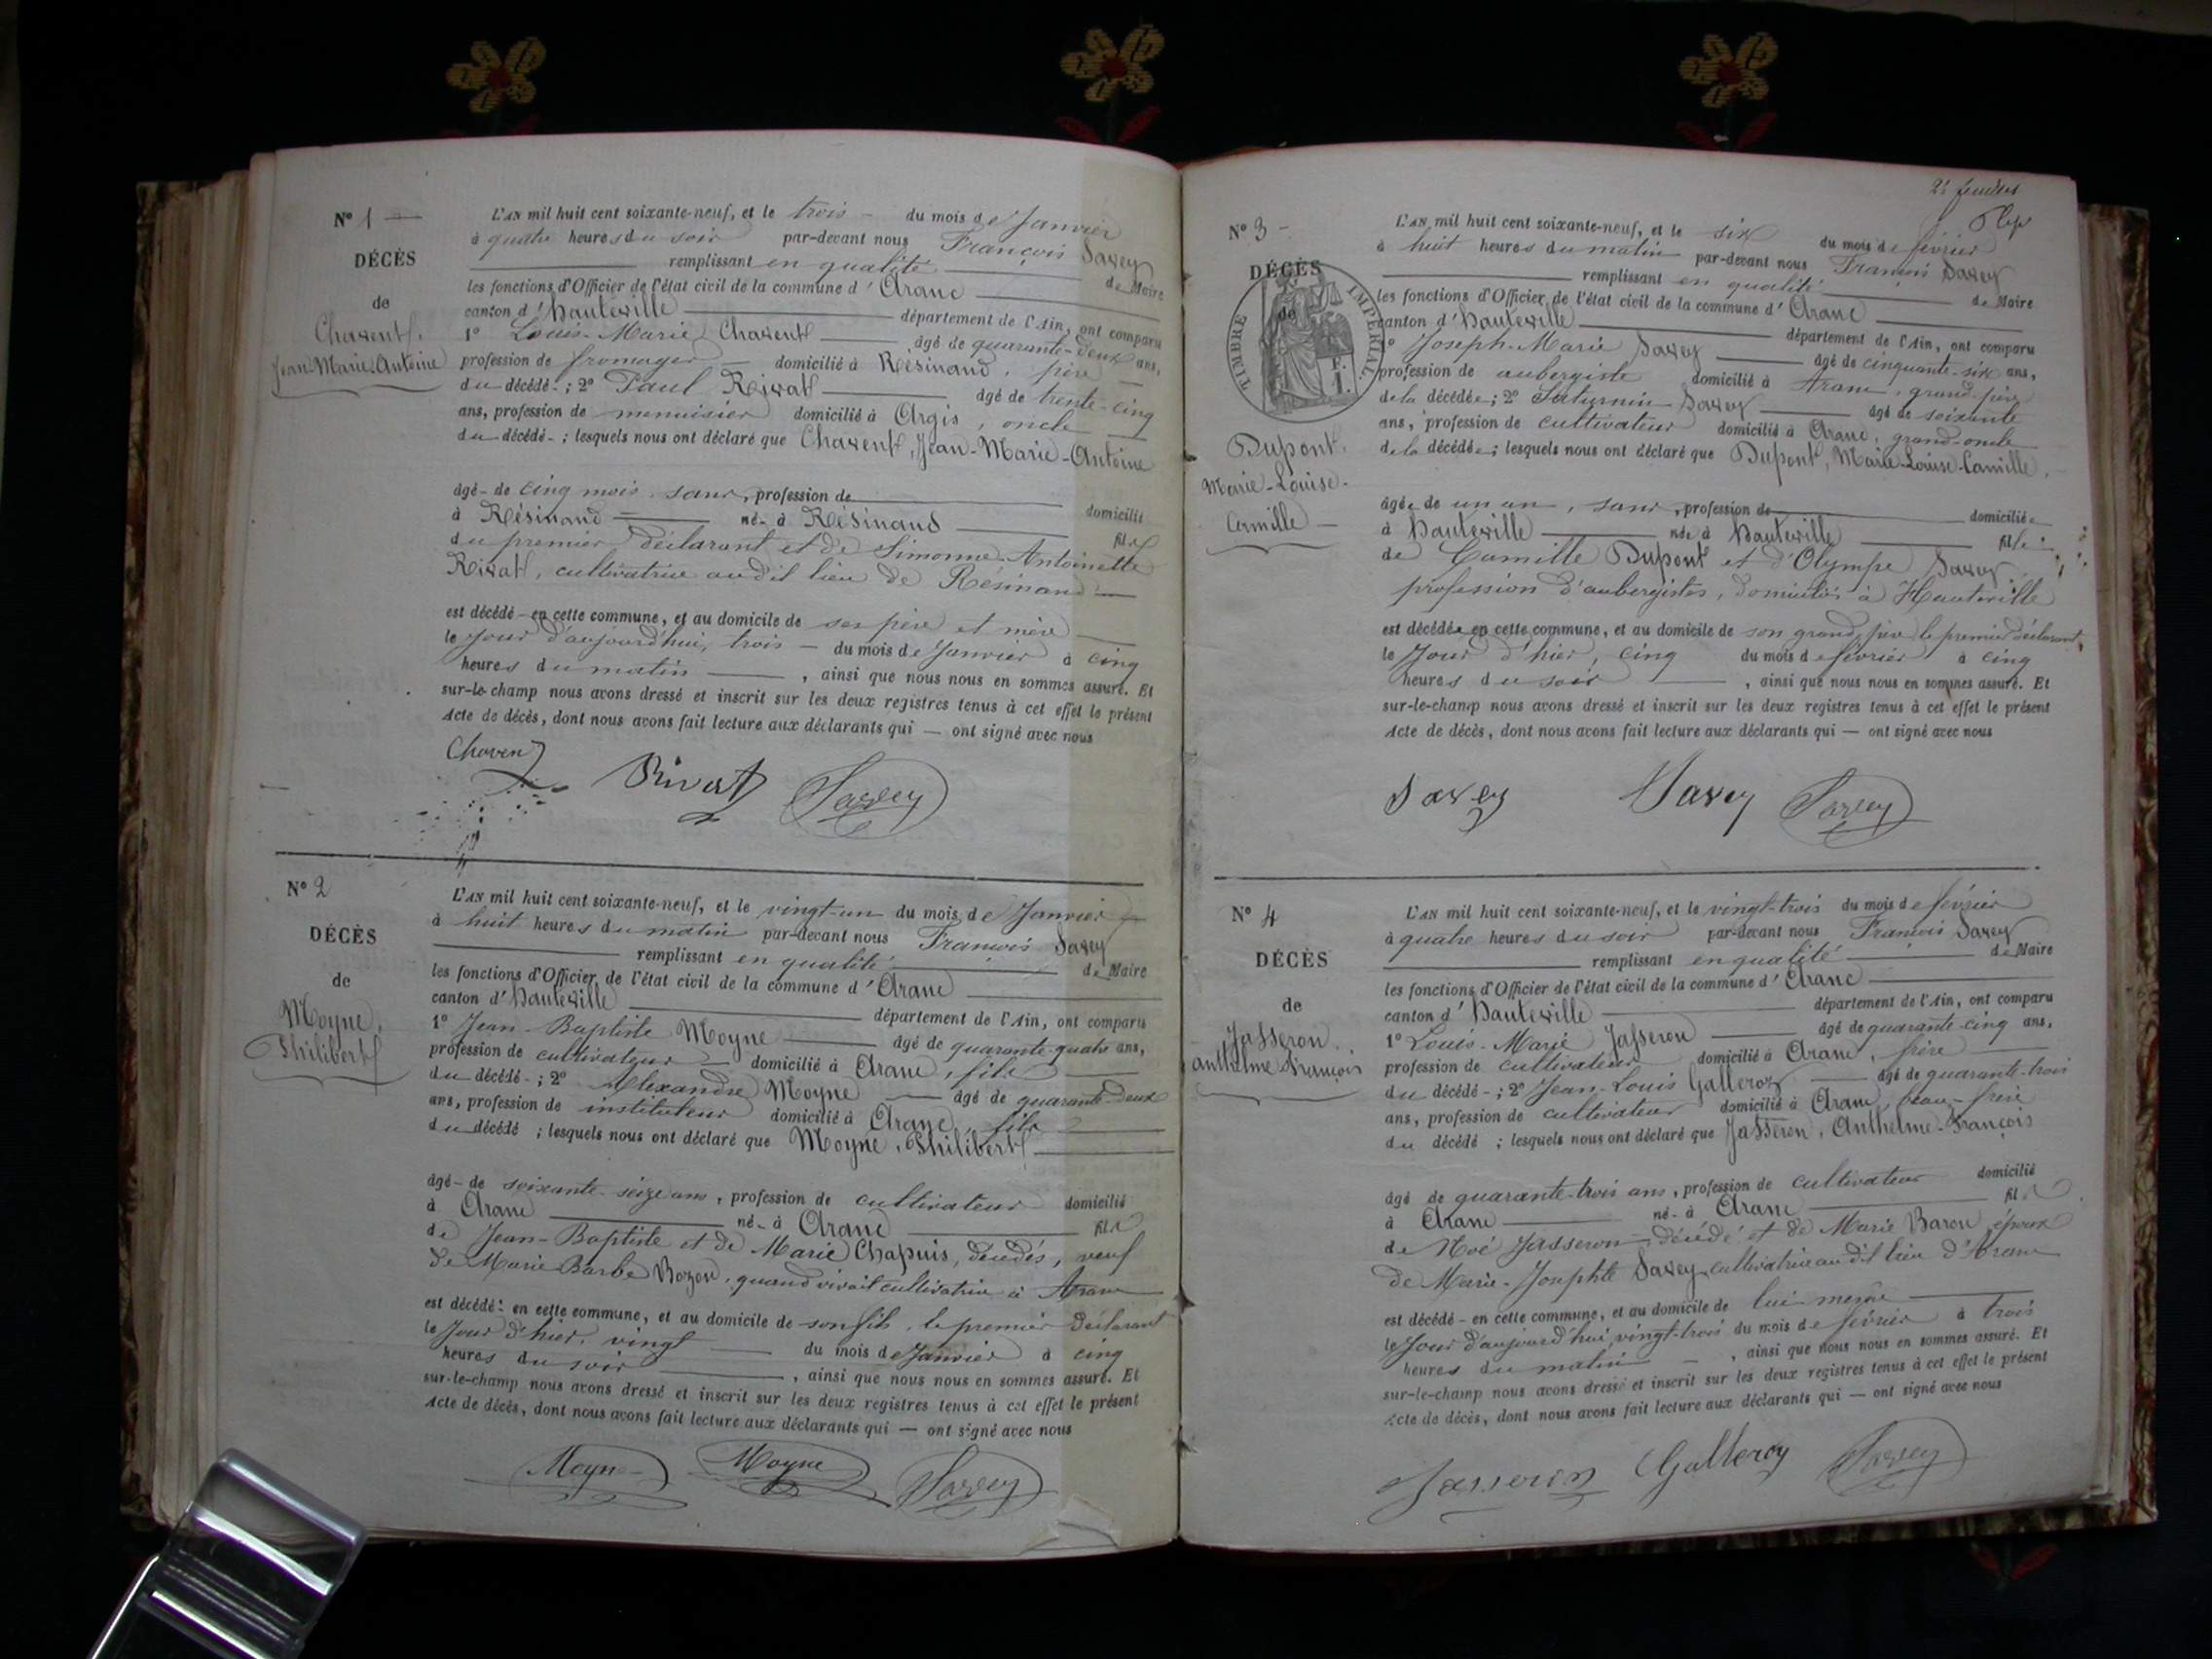 N° 1
DÉCÈS
de
Chavent.
Jean-Marie-Antoine
L'AN mil huit cent soixante-neuf, et le trois du mois de Janvier
à quatre heures du soir par-devant nous François Savey
remplissant en qualité de Maire
les fonctions d'Officier de l'état civil de la commune d'Aranc
canton d'Hauteville département de l'Ain, ont comparu
1° Louis-Marie Chavent âgé de quarante-deux ans,
profession de fromager domicilié à Résinand, père
du décédé ; 2° Paul Rivat âgé de trente-cinq
ans, profession de menuisier domicilié à Argis, oncle
du décédé ; lesquels nous ont déclaré que Chavent, Jean-Marie-Antoine
âgé de cinq mois, sans, profession de domicilié
à Résinand né à Résinand fils
du premier déclarant et de Simonne Antoinette
Rivat, cultivatrice audit lieu de Résinand
est décédé en cette commune, et au domicile de ses père et mère
le jour d'aujourd'hui, trois du mois de Janvier à cinq
heures du matin, ainsi que nous nous en sommes assuré. Et
sur-le-champ nous avons dressé et inscrit sur les deux registres tenus à cet effet le présent
Acte de décès, dont nous avons fait lecture aux déclarants qui — ont signé avec nous
Chavent Rivat Savey
N° 2
DÉCÈS
de
Moyne,
Philibert
L'AN mil huit cent soixante-neuf, et le vingt-un du mois de Janvier
à huit heures du matin par-devant nous François Savey
remplissant en qualité de Maire
les fonctions d'Officier de l'état civil de la commune d'Aranc
canton d'Hauteville département de l'Ain, ont comparu
1° Jean-Baptiste Moyne âgé de quarante-quatre ans,
profession de cultivateur domicilié à Aranc, fils
du décédé ; 2° Alexandre Moyne âgé de quarante-deux
ans, profession de instituteur domicilié à Aranc, fils
du décédé ; lesquels nous ont déclaré que Moyne, Philibert
âgé de soixante-seize ans, profession de cultivateur domicilié
à Aranc né à Aranc fils
de Jean-Baptiste et de Marie Chapuis, décédés, veuf
de Marie Barbe Bozon, quand vivait cultivatrice à Aranc
est décédé en cette commune, et au domicile de son fils, le premier déclarant
le jour d'hier, vingt du mois de Janvier à cinq
heures du soir, ainsi que nous nous en sommes assuré. Et
sur-le-champ nous avons dressé et inscrit sur les deux registres tenus à cet effet le présent
Acte de décès, dont nous avons fait lecture aux déclarants qui — ont signé avec nous
Moyne Moyne Savey
2e feuillet
N° 3
DÉCÈS
de
TIMBRE IMPÉRIAL.
Dupont.
Marie-Louise-
Camille
L'AN mil huit cent soixante-neuf, et le six du mois de février
à huit heures du matin par-devant nous François Savey
remplissant en qualité de Maire
les fonctions d'Officier de l'état civil de la commune d'Aranc
canton d'Hauteville département de l'Ain, ont comparu
1° Joseph-Marie Savey âgé de cinquante-six ans,
profession de aubergiste domicilié à Aranc, grand-père
de la décédée ; 2° Saturnin Savey âgé de soixante
ans, profession de cultivateur domicilié à Aranc, grand-oncle
de la décédée ; lesquels nous ont déclaré que Dupont, Marie-Louise-Camille,
âgée de un an, sans, profession de domiciliée
à Hauteville née à Hauteville fille
de Camille Dupont et d'Olympe Savey,
profession d'aubergistes, domiciliés à Hauteville
est décédée en cette commune, et au domicile de son grand père le premier déclarant,
le jour d'hier, cinq du mois de février à cinq
heures du soir, ainsi que nous nous en sommes assuré. Et
sur-le-champ nous avons dressé et inscrit sur les deux registres tenus à cet effet le présent
Acte de décès, dont nous avons fait lecture aux déclarants qui — ont signé avec nous
Savey Savey Savey
N° 4
DÉCÈS
de
Jasseron.
anthelme François
L'AN mil huit cent soixante-neuf, et le vingt-trois du mois de février
à quatre heures du soir par-devant nous François Savey
remplissant en qualité de Maire
les fonctions d'Officier de l'état civil de la commune d'Aranc
canton d'Hauteville département de l'Ain, ont comparu
1° Louis-Marie Jasseron âgé de quarante-cinq ans,
profession de cultivateur domicilié à Aranc, frère
du décédé ; 2° Jean-Louis Galleroy âgé de quarante-trois
ans, profession de cultivateur domicilié à Aranc, beau-frère
du décédé ; lesquels nous ont déclaré que Jasseron, Anthelme-François
âgé de quarante-trois ans, profession de cultivateur domicilié
à Aranc né à Aranc fils
de Noé Jasseron décédé et de Marie Baron, époux
de Marie-Josephte Savey, cultivatrice audit lieu d'Aranc
est décédé en cette commune, et au domicile de lui-même
le jour d'aujourd'hui vingt-trois du mois de février à trois
heures du matin, ainsi que nous nous en sommes assuré. Et
sur-le-champ nous avons dressé et inscrit sur les deux registres tenus à cet effet le présent
Acte de décès, dont nous avons fait lecture aux déclarants qui — ont signé avec nous
Jasseron Galleroy Savey